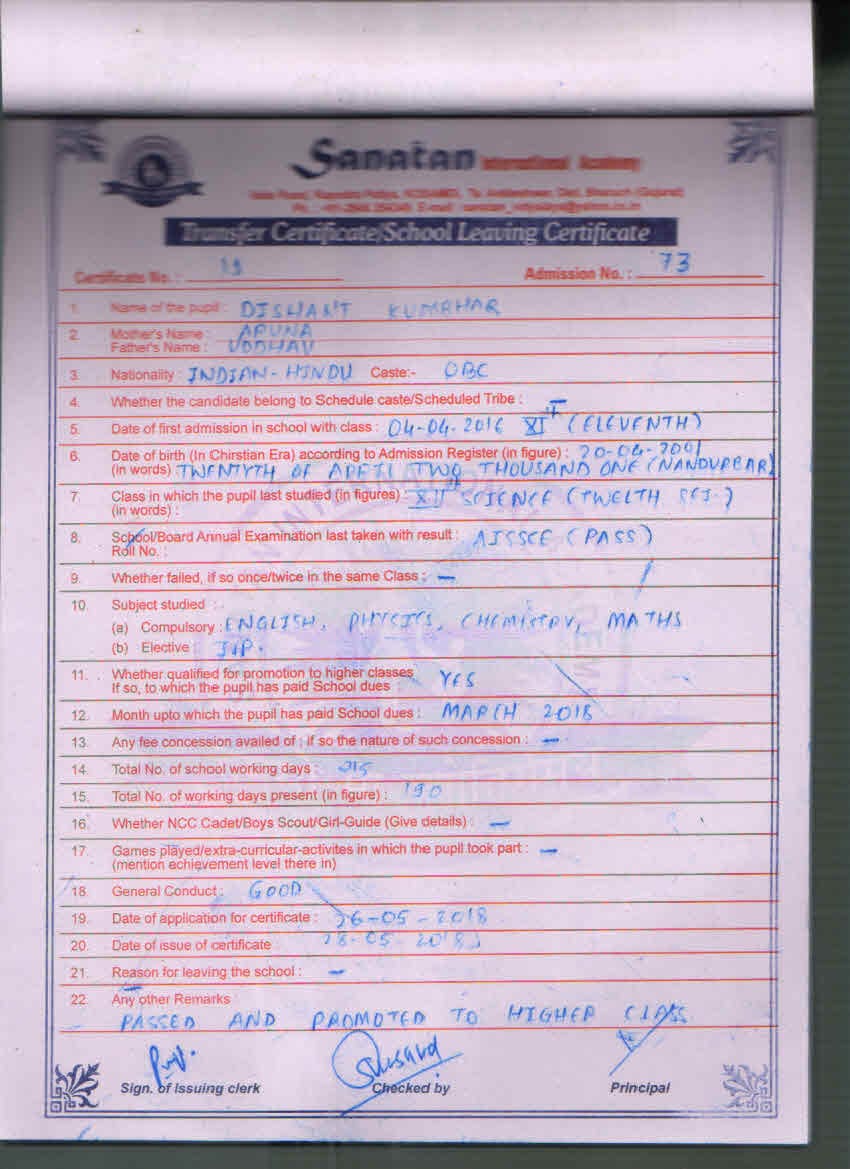 Sanatan International Academy
Transfer Certificate/School Leaving Certificate
Certificate No. : 19 Admission No. : 73
1. Name of the pupil : DISHANT KUMBHAR
2. Mother's Name : ARUNA
Father's Name : UDDHAV
3. Nationality : INDIAN - HINDU Caste:- OBC
4. Whether the candidate belong to Schedule caste/Scheduled Tribe : —
5. Date of first admission in school with class : 04-04-2016 XI (ELEVENTH)
6. Date of birth (In Chirstian Era) according to Admission Register (in figure) : 20-04-2001
(in words) TWENTYTH OF APRIL TWO THOUSAND ONE (NANDURBAR)
7. Class in which the pupil last studied (in figures) : XII SCIENCE (TWELTH SCI.)
(in words) :
8. School/Board Annual Examination last taken with result : AISSCE (PASS)
Roll No. :
9. Whether failed, if so once/twice in the same Class : —
10. Subject studied :
(a) Compulsory : ENGLISH, PHYSICS, CHEMISTRY, MATHS
(b) Elective : I.P.
11. Whether qualified for promotion to higher classes YES
If so, to which the pupil has paid School dues :
12. Month upto which the pupil has paid School dues : MARCH 2018
13. Any fee concession availed of : if so the nature of such concession : —
14. Total No. of school working days : 215
15. Total No. of working days present (in figure) : 190
16. Whether NCC Cadet/Boys Scout/Girl-Guide (Give details) : —
17. Games played/extra-curricular-activites in which the pupil took part : —
(mention achievement level there in)
18. General Conduct : GOOD
19. Date of application for certificate : 26-05-2018
20. Date of issue of certificate 28-05-2018
21. Reason for leaving the school : —
22. Any other Remarks
PASSED AND PROMOTED TO HIGHER CLASS
Sign. of Issuing clerk Checked by Principal